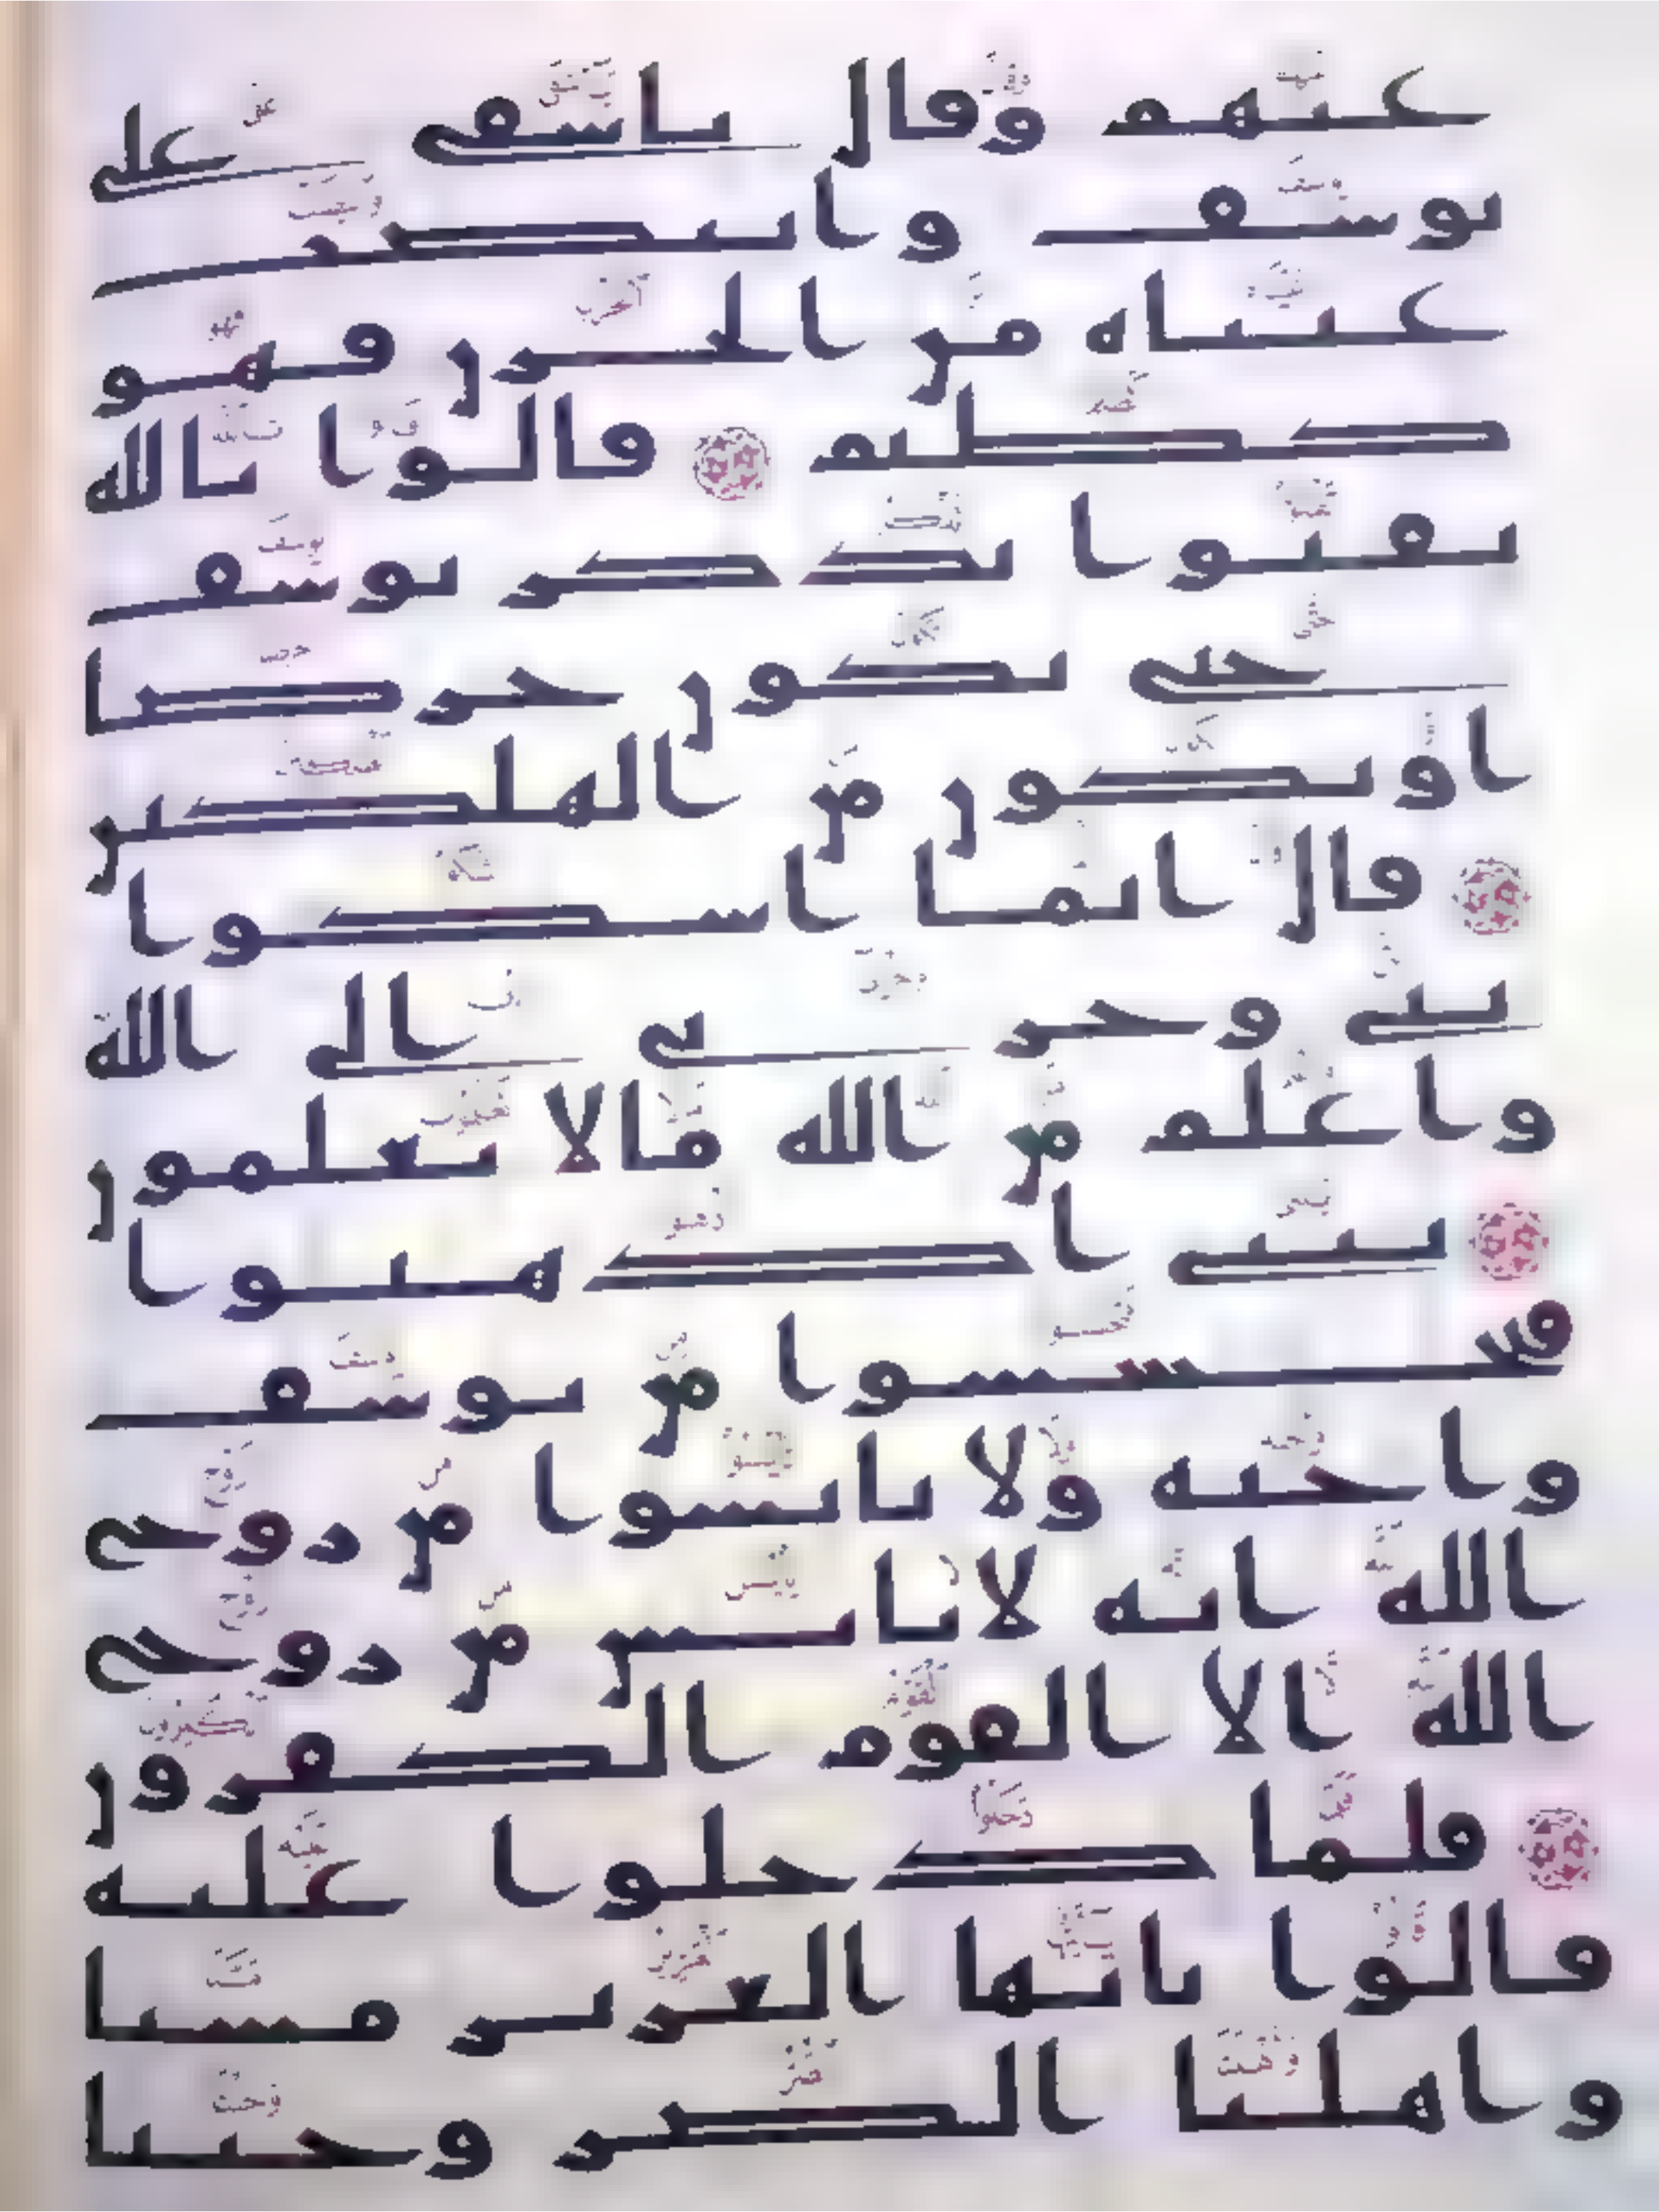 عنهم وقال ياسفى على
يوسف وابيضت
عيناه من الحزن فهو
كظيم قالوا تالله
تفتوا تذكر يوسف
حتى تكون حرضا
او تكون من الهلكين
قال انما اشكوا
بثي وحزني الى الله
واعلم من الله ما لا تعلمون
يبني اذهبوا
فتحسسوا من يوسف
واخيه ولا تايسوا من روح
الله انه لا يايس من روح
الله الا القوم الكفرون
فلما دخلوا عليه
قالوا يايها العزيز مسنا
واهلنا الضر وجينا